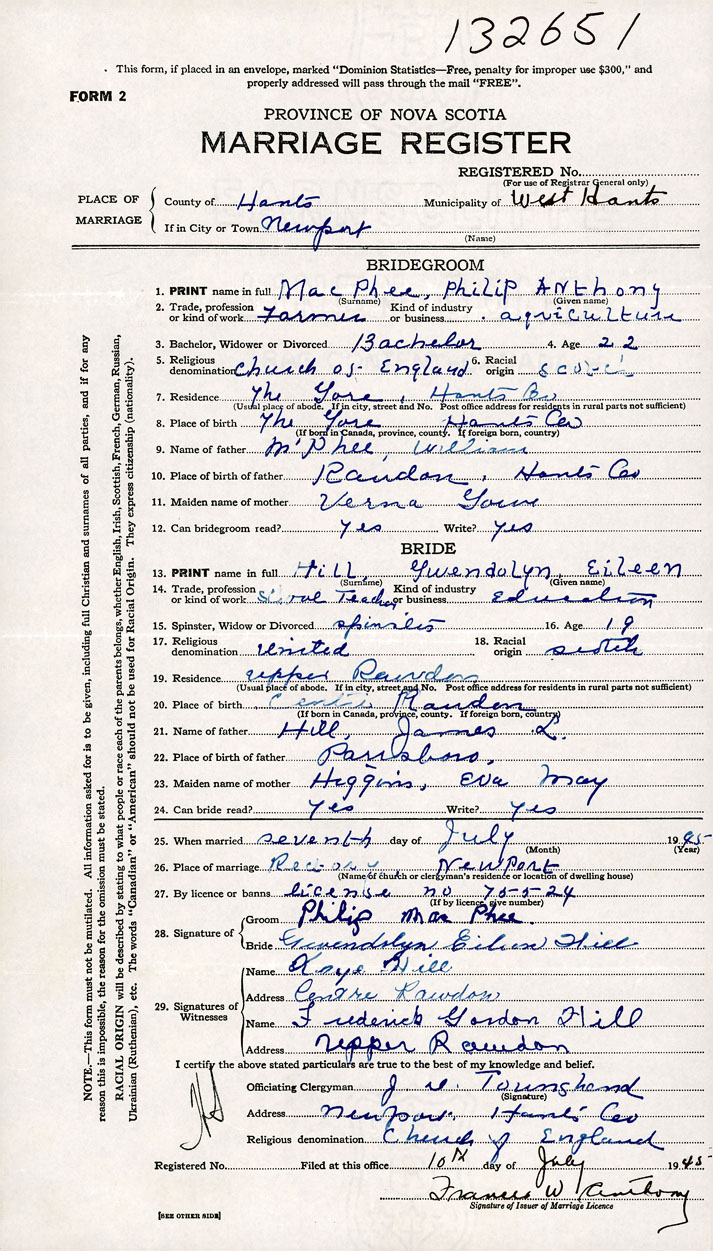 132651
This form, if placed in an envelope, marked "Dominion Statistics—Free, penalty for improper use $300," and
properly addressed will pass through the mail "FREE".
FORM 2
PROVINCE OF NOVA SCOTIA
MARRIAGE REGISTER
REGISTERED No.
(For use of Registrar General only)
PLACE OF MARRIAGE
County of Hants Municipality of West Hants
If in City or Town Newport
(Name)
BRIDEGROOM
1. PRINT name in full MacPhee, Philip Anthony
(Surname) (Given name)
2. Trade, profession or kind of work Farmer Kind of industry or business agriculture
3. Bachelor, Widower or Divorced Bachelor 4. Age 22
5. Religious denomination Church of England 6. Racial origin
7. Residence The Gore, Hants Co
(Usual place of abode. If in city, street and No. Post office address for residents in rural parts not sufficient)
8. Place of birth The Gore Hants Co
(If born in Canada, province, county. If foreign born, country)
9. Name of father McPhee, William
10. Place of birth of father Rawdon, Hants Co
11. Maiden name of mother Verna
12. Can bridegroom read? yes Write? yes
BRIDE
13. PRINT name in full Hill, Gwendolyn, Eileen
(Surname) (Given name)
14. Trade, profession or kind of work School Teacher Kind of industry or business Education
15. Spinster, Widow or Divorced spinster 16. Age 19
17. Religious denomination United 18. Racial origin scotch
19. Residence upper Rawdon
(Usual place of abode. If in city, street and No. Post office address for residents in rural parts not sufficient)
20. Place of birth Centre Rawdon
(If born in Canada, province, county. If foreign born, country)
21. Name of father Hill, James L.
22. Place of birth of father Parrsboro,
23. Maiden name of mother Higgins, Eva May
24. Can bride read? yes Write? yes
25. When married seventh day of July 1945
(Month) (Year)
26. Place of marriage Rectory, Newport
(Name of church or clergyman's residence or location of dwelling house)
27. By licence or banns license no 75524
(If by licence, give number)
28. Signature of
Groom Philip MacPhee.
Bride Gwendolyn Eileen Hill
29. Signatures of Witnesses
Name Kaye Hill
Address Centre Rawdon
Name Frederick Gordon Hill
Address Upper Rawdon
I certify the above stated particulars are true to the best of my knowledge and belief.
Officiating Clergyman J.
(Signature)
Address Newport, Hants Co
Religious denomination Church of England
Registered No. Filed at this office 10th day of July 1945
Francis W. Anthony
Signature of Issuer of Marriage Licence
[SEE OTHER SIDE]
NOTE.—This form must not be mutilated. All information asked for is to be given, including full Christian and surnames of all parties, and if for any
reason this is impossible, the reason for the omission must be stated.
RACIAL ORIGIN will be described by stating to what people or race each of the parents belongs, whether English, Irish, Scottish, French, German, Russian,
Ukrainian (Ruthenian), etc. The words "Canadian" or "American" should not be used for Racial Origin. They express citizenship (nationality).